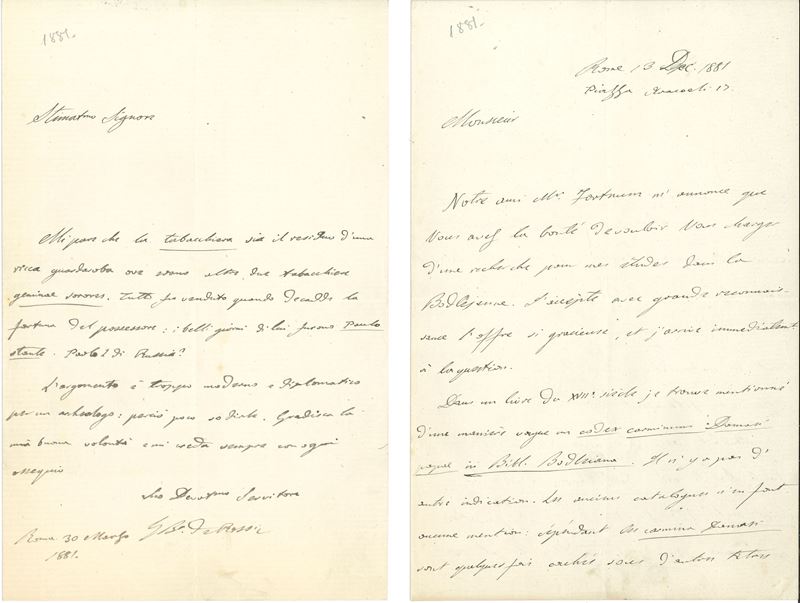 1881.
Stimatmo Signore
Mi pare che la tabacchiera sia il residuo d'una
ricca guardaroba ove erano altre due tabacchiere
geminae sorores. Tutto fu venduto quando decadde la
fortuna del possessore: i bei giorni di lui furono Paulo
stante. Paolo I di Russia?
L'argomento è troppo moderno e diplomatico
per un archeologo: perciò poco so dirle. Gradisca la
mia buona volontà e mi creda sempre con ogni
ossequio
Suo Devotmo Servitore
G. B. de Rossi
Roma 30 Marzo
1881.
1881.
Rome 13 Dec. 1881
Piazza Aracoeli 17.
Monsieur
Notre ami Mr. Fortnum m'annonce que
Vous avez la bonté de vouloir Vous charger
d'une recherche pour mes études dans la
Bodlejenne. J'accepte avec grande reconnais-
sance l'offre si gracieuse, et j'arrive immédiatement
à la question.
Dans un livre du XVII. siècle je trouve mentionné
d'une manière vague un codex carminum Damasi
papae in Bibl. Bodleiana. Il n'y a pas d'
autre indication. Les anciens catalogues n'en font
aucune mention: cependant les carmina Damasi
sont quelques fois cachés sous d'autres titres